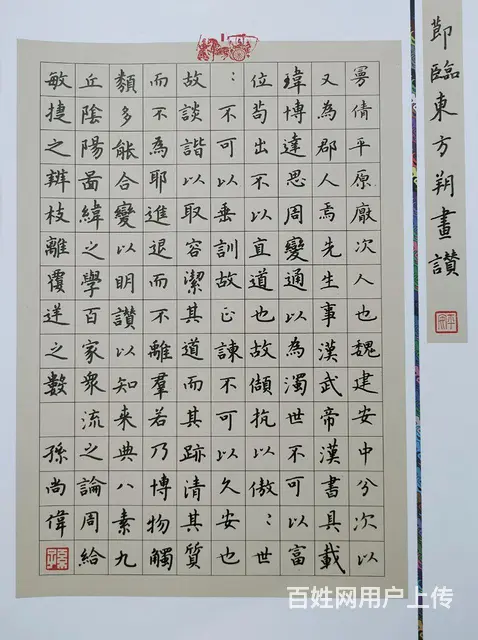 節臨東方朔畫讚
曼倩平原厭次人也魏建安中分次以
又為郡人焉先生事漢武帝漢書具載
瑋博達思周變通以為濁世不可以富
位苟出不以直道也故傾抗以傲：世
：不可以垂訓故正諫不可以久安也
故談諧以取容潔其道而其跡清其質
而不為耶進退而不離羣若乃博物觸
類多能合變以明讚以知来典八素九
丘陰陽啚緯之學百家衆流之論周給
敏捷之辨枝離覆逆之數 孫尚偉
百姓网用户上传